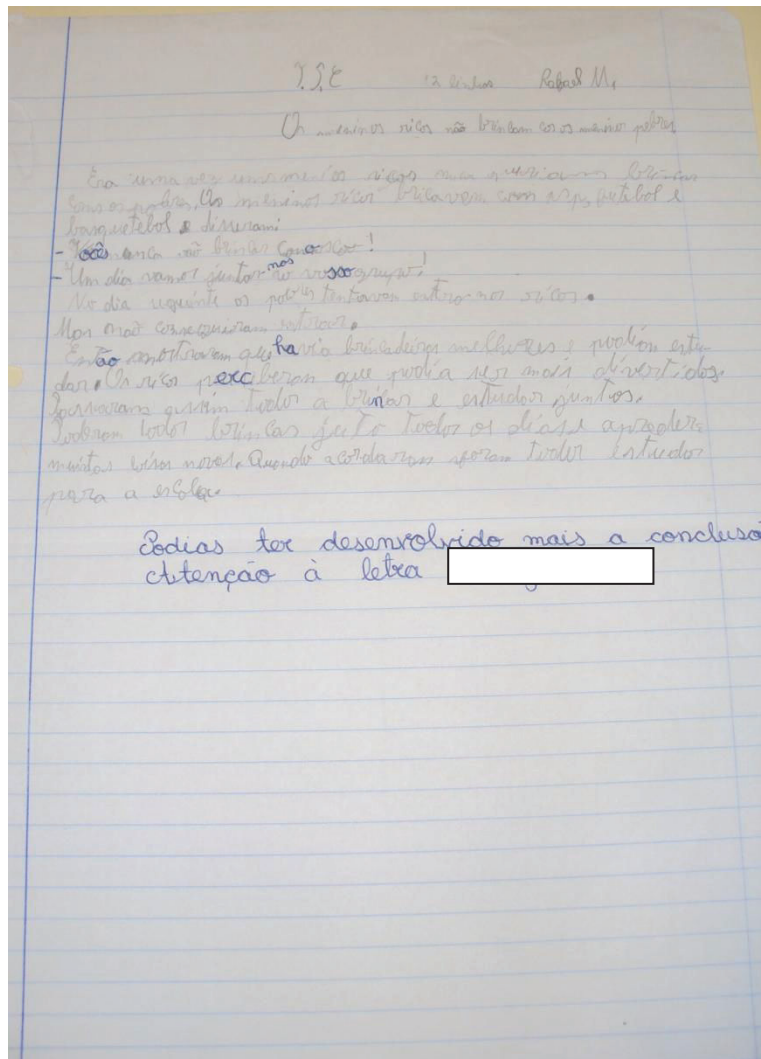 T.S.E 12 linhas Rafael M.
Os meninos ricos não brincam com os menino pobres
Era uma vez uns meninos ricos brincar
com os pobres. Os meninos ricos bricavam com futebol e
basquetebol e disseram:
- Vocês não brincar conosco!
- Um dia vamos juntar-nos no vosso grupo!
No dia seguinte os pobres tentavam entrar nos ricos.
Mas não conseguiram entrar.
Então que havia brincadeiras melhores e podiam estu-
dar. Os ricos perceberam que podia ser mais divertidos.
assim todos a brinar e estudar juntos.
Poderam todos brincar juto todos os dias e aprender
muitas coisas novas. Quando acordaram foram todos estudar
para a escola.
Podias ter desenvolvido mais a conclusão
Atenção à letra